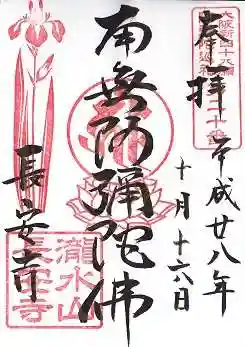 奉拝
大阪新四十八願
平成廿八年
十月十六日
南無阿彌陀佛
長安寺
瀧水山
長安寺